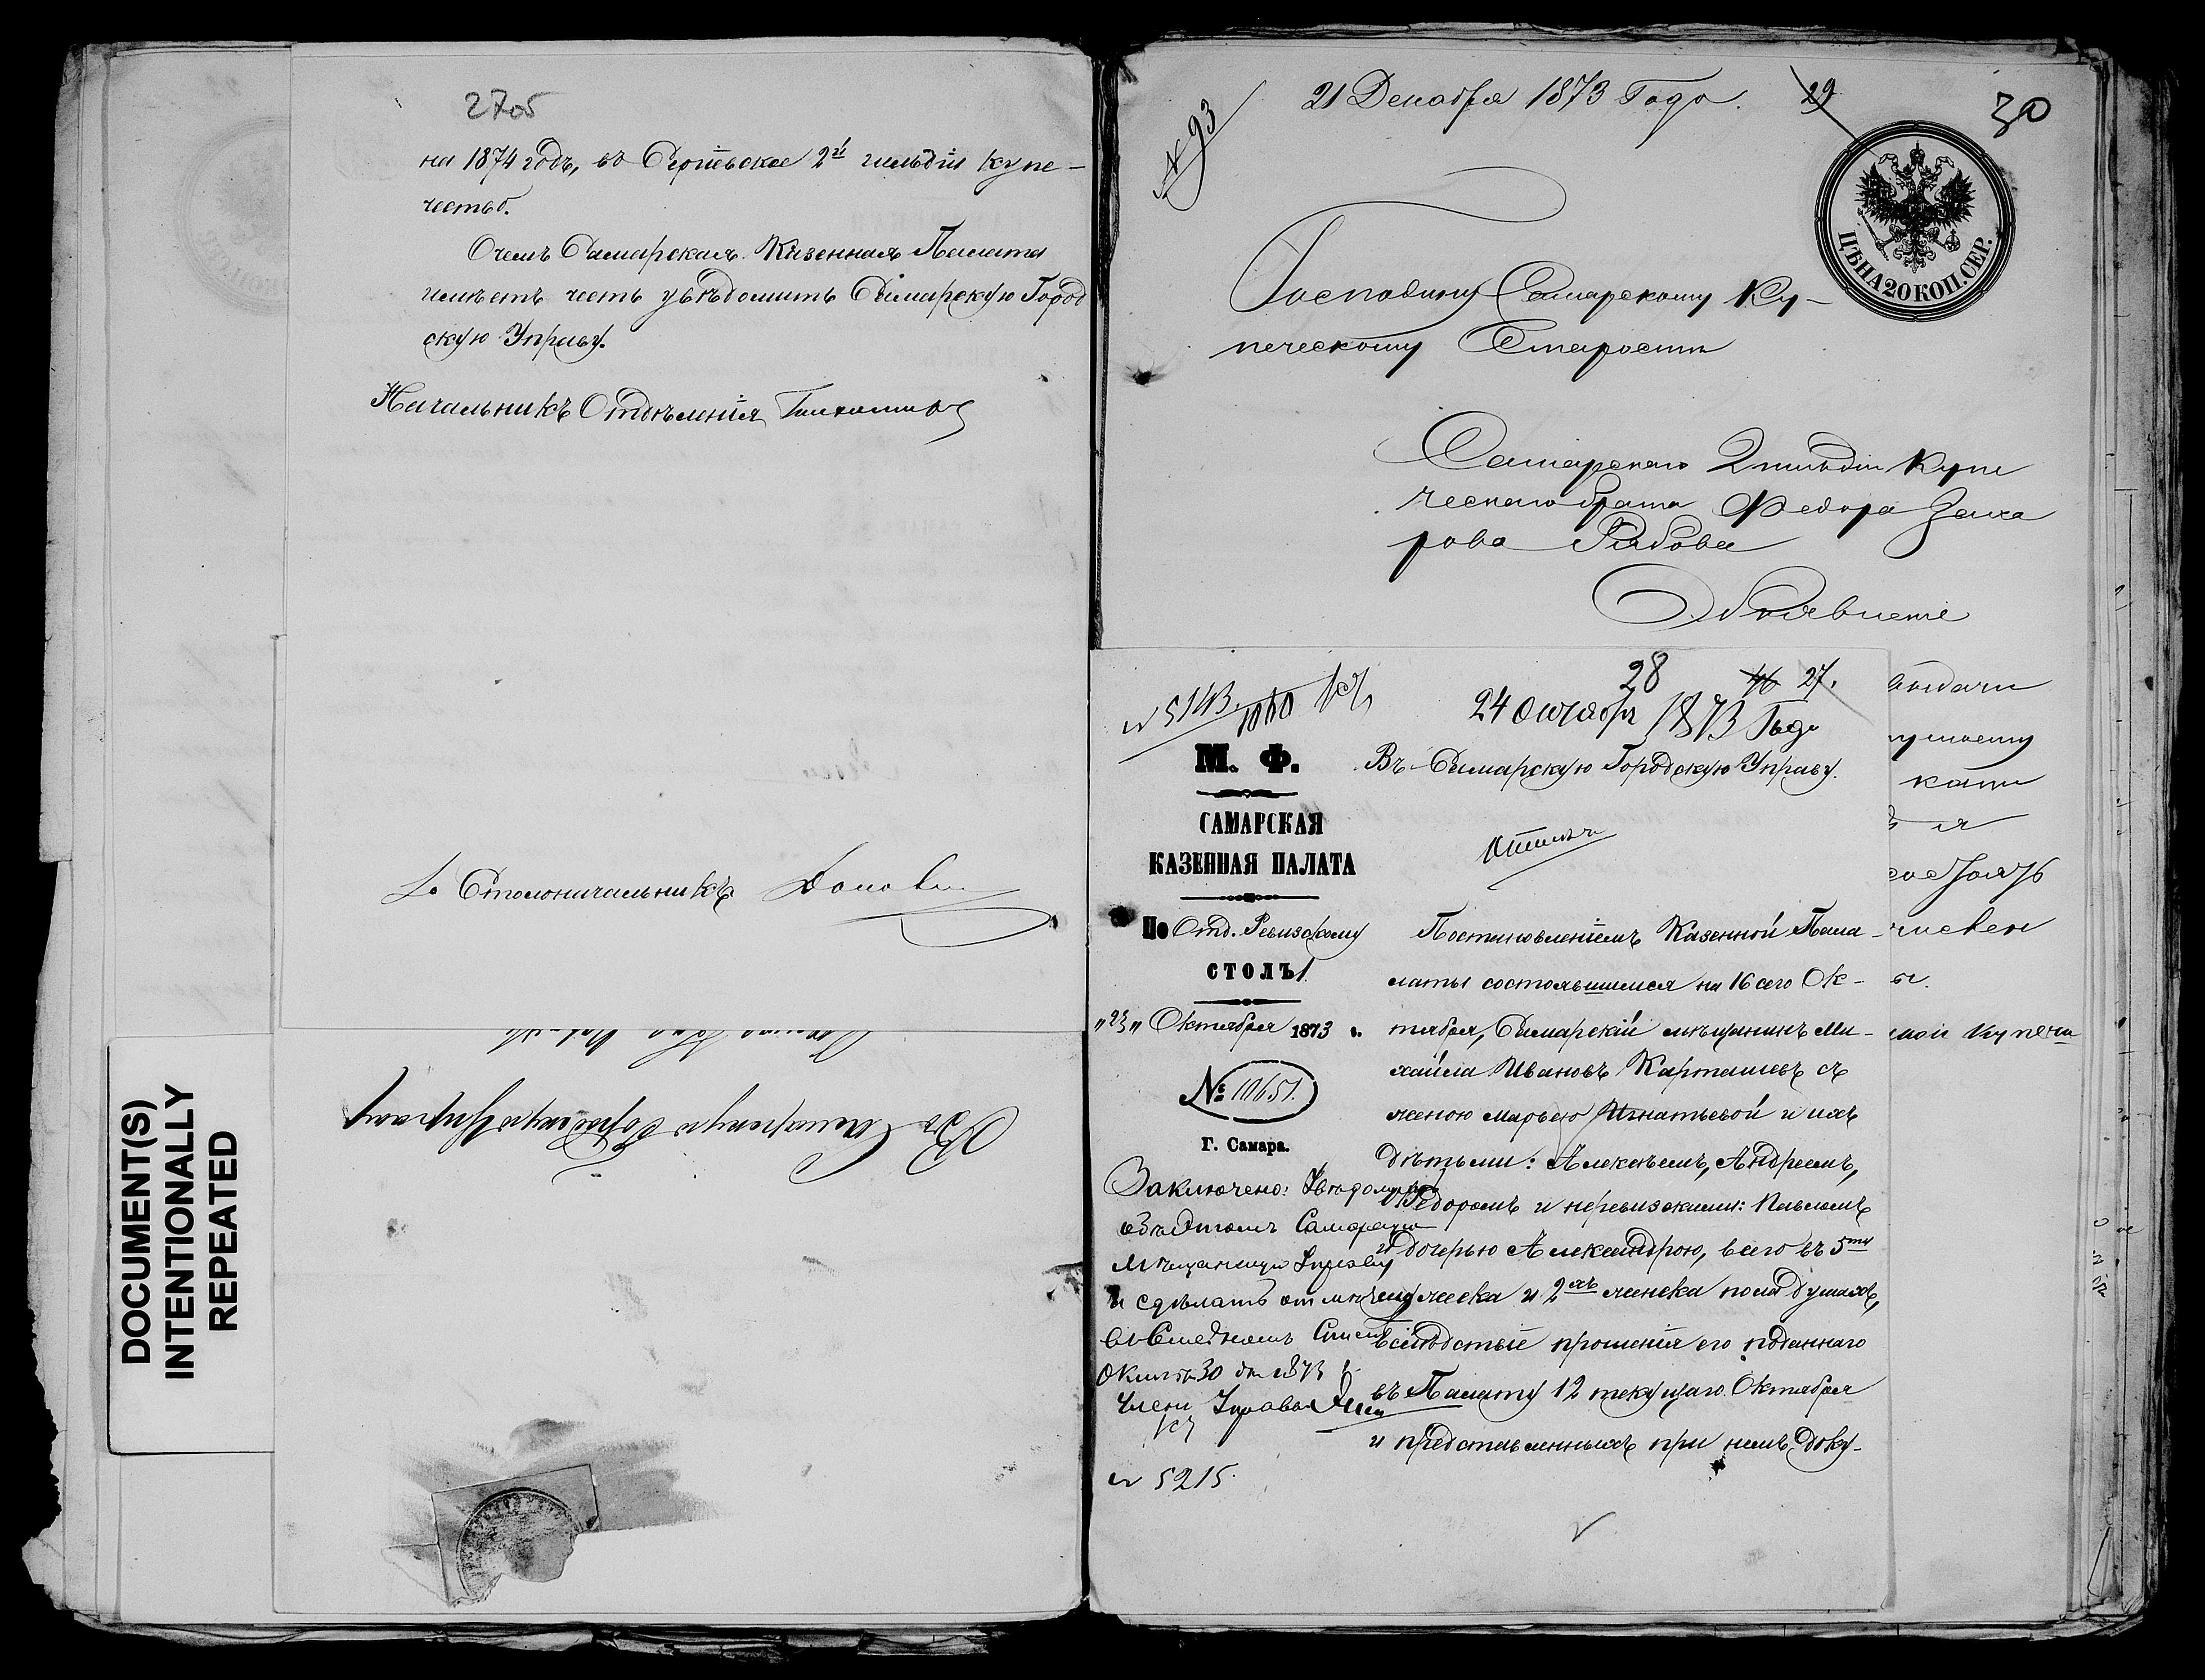 27об
на 1874 годъ, въ Сергіевское 2й гильдіи купе-
чество.
Очемъ Самарская Казенная Палата
имѣетъ честь увѣдомить Самарскую Город
скую Управу.
Начальникъ Отдѣленія
Столоначальникъ
Въ Самарскую Городскую Управу
DOCUMENT(S)
INTENTIONALLY
REPEATED
№ 93
21 Декабря 1873 Года.
29
30
ЦѢНА 20 КОП. СЕР.
Господину Самарскому Ку-
печескому Старостѣ
Самарскаго 2 гильдіи Купе
ческаго брата Федора Заха
рова Рябова
Объявленіе
выдачи
28
46 27.
№ 5143
24 октября 1873 Года
М. Ф.
САМАРСКАЯ
КАЗЕННАЯ ПАЛАТА
По Отд. Ревизскому
СТОЛЪ 1.
"23" Октября 1873 г.
№ 10651.
Г. Самара.
Въ Самарскую Городскую Управу.
Постановленіемъ Казенной Пала-
латы состоявшимся на 16 сего Ок-
тября, Самарскій мѣщанинъ Ми-
хаила Ивановъ Карташевъ съ
женою Марьею Игнатьевой и ихъ
дѣтьми: Алексѣемъ, Андреемъ,
Федоромъ и неревизскими: Павломъ
и дочерью Александрою, всего въ 5ти
мужеска и 2хъ женска пола душахъ,
вслѣдствіе прошенія его поданнаго
въ Палату 12 текущаго Октября
и представленныхъ при немъ доку-
Заключено: Увѣдомить
объ этомъ Самарскую
Мѣщанскую Управу
и сдѣлать отмѣтку
въ Списк
30 дня 1873 г.
Членъ Управы
№ 5215.